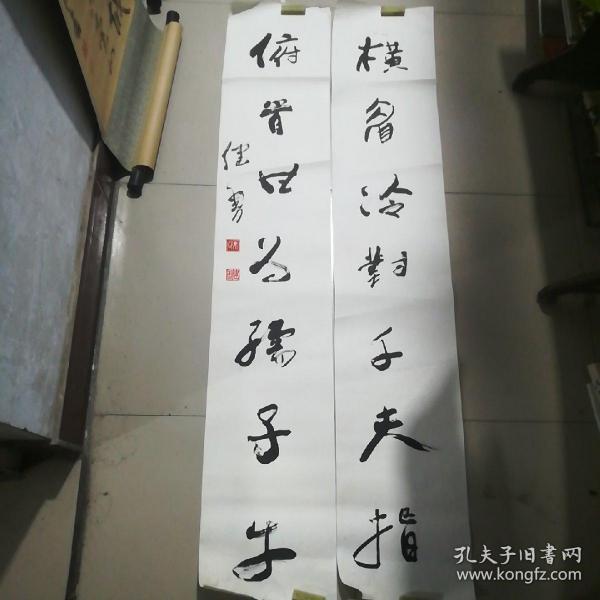 横眉冷對千夫指
俯首甘为孺子牛
孔夫子旧書网
www.kongfz.com